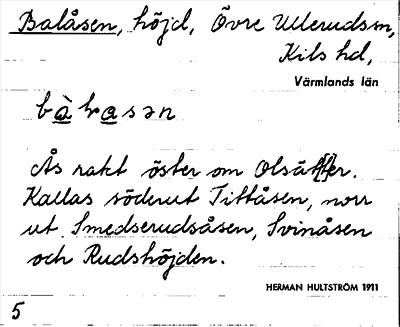 Balåsen, höjd, Övre Ullerudsm,
Kils hd,
Värmlands län
Ås rakt öster om Olsäter.
Kallas söderut Tittåsen, norr
ut Smedserudsåsen, Svinåsen
och Rudshöjden.
HERMAN HULTSTRÖM 1911
5